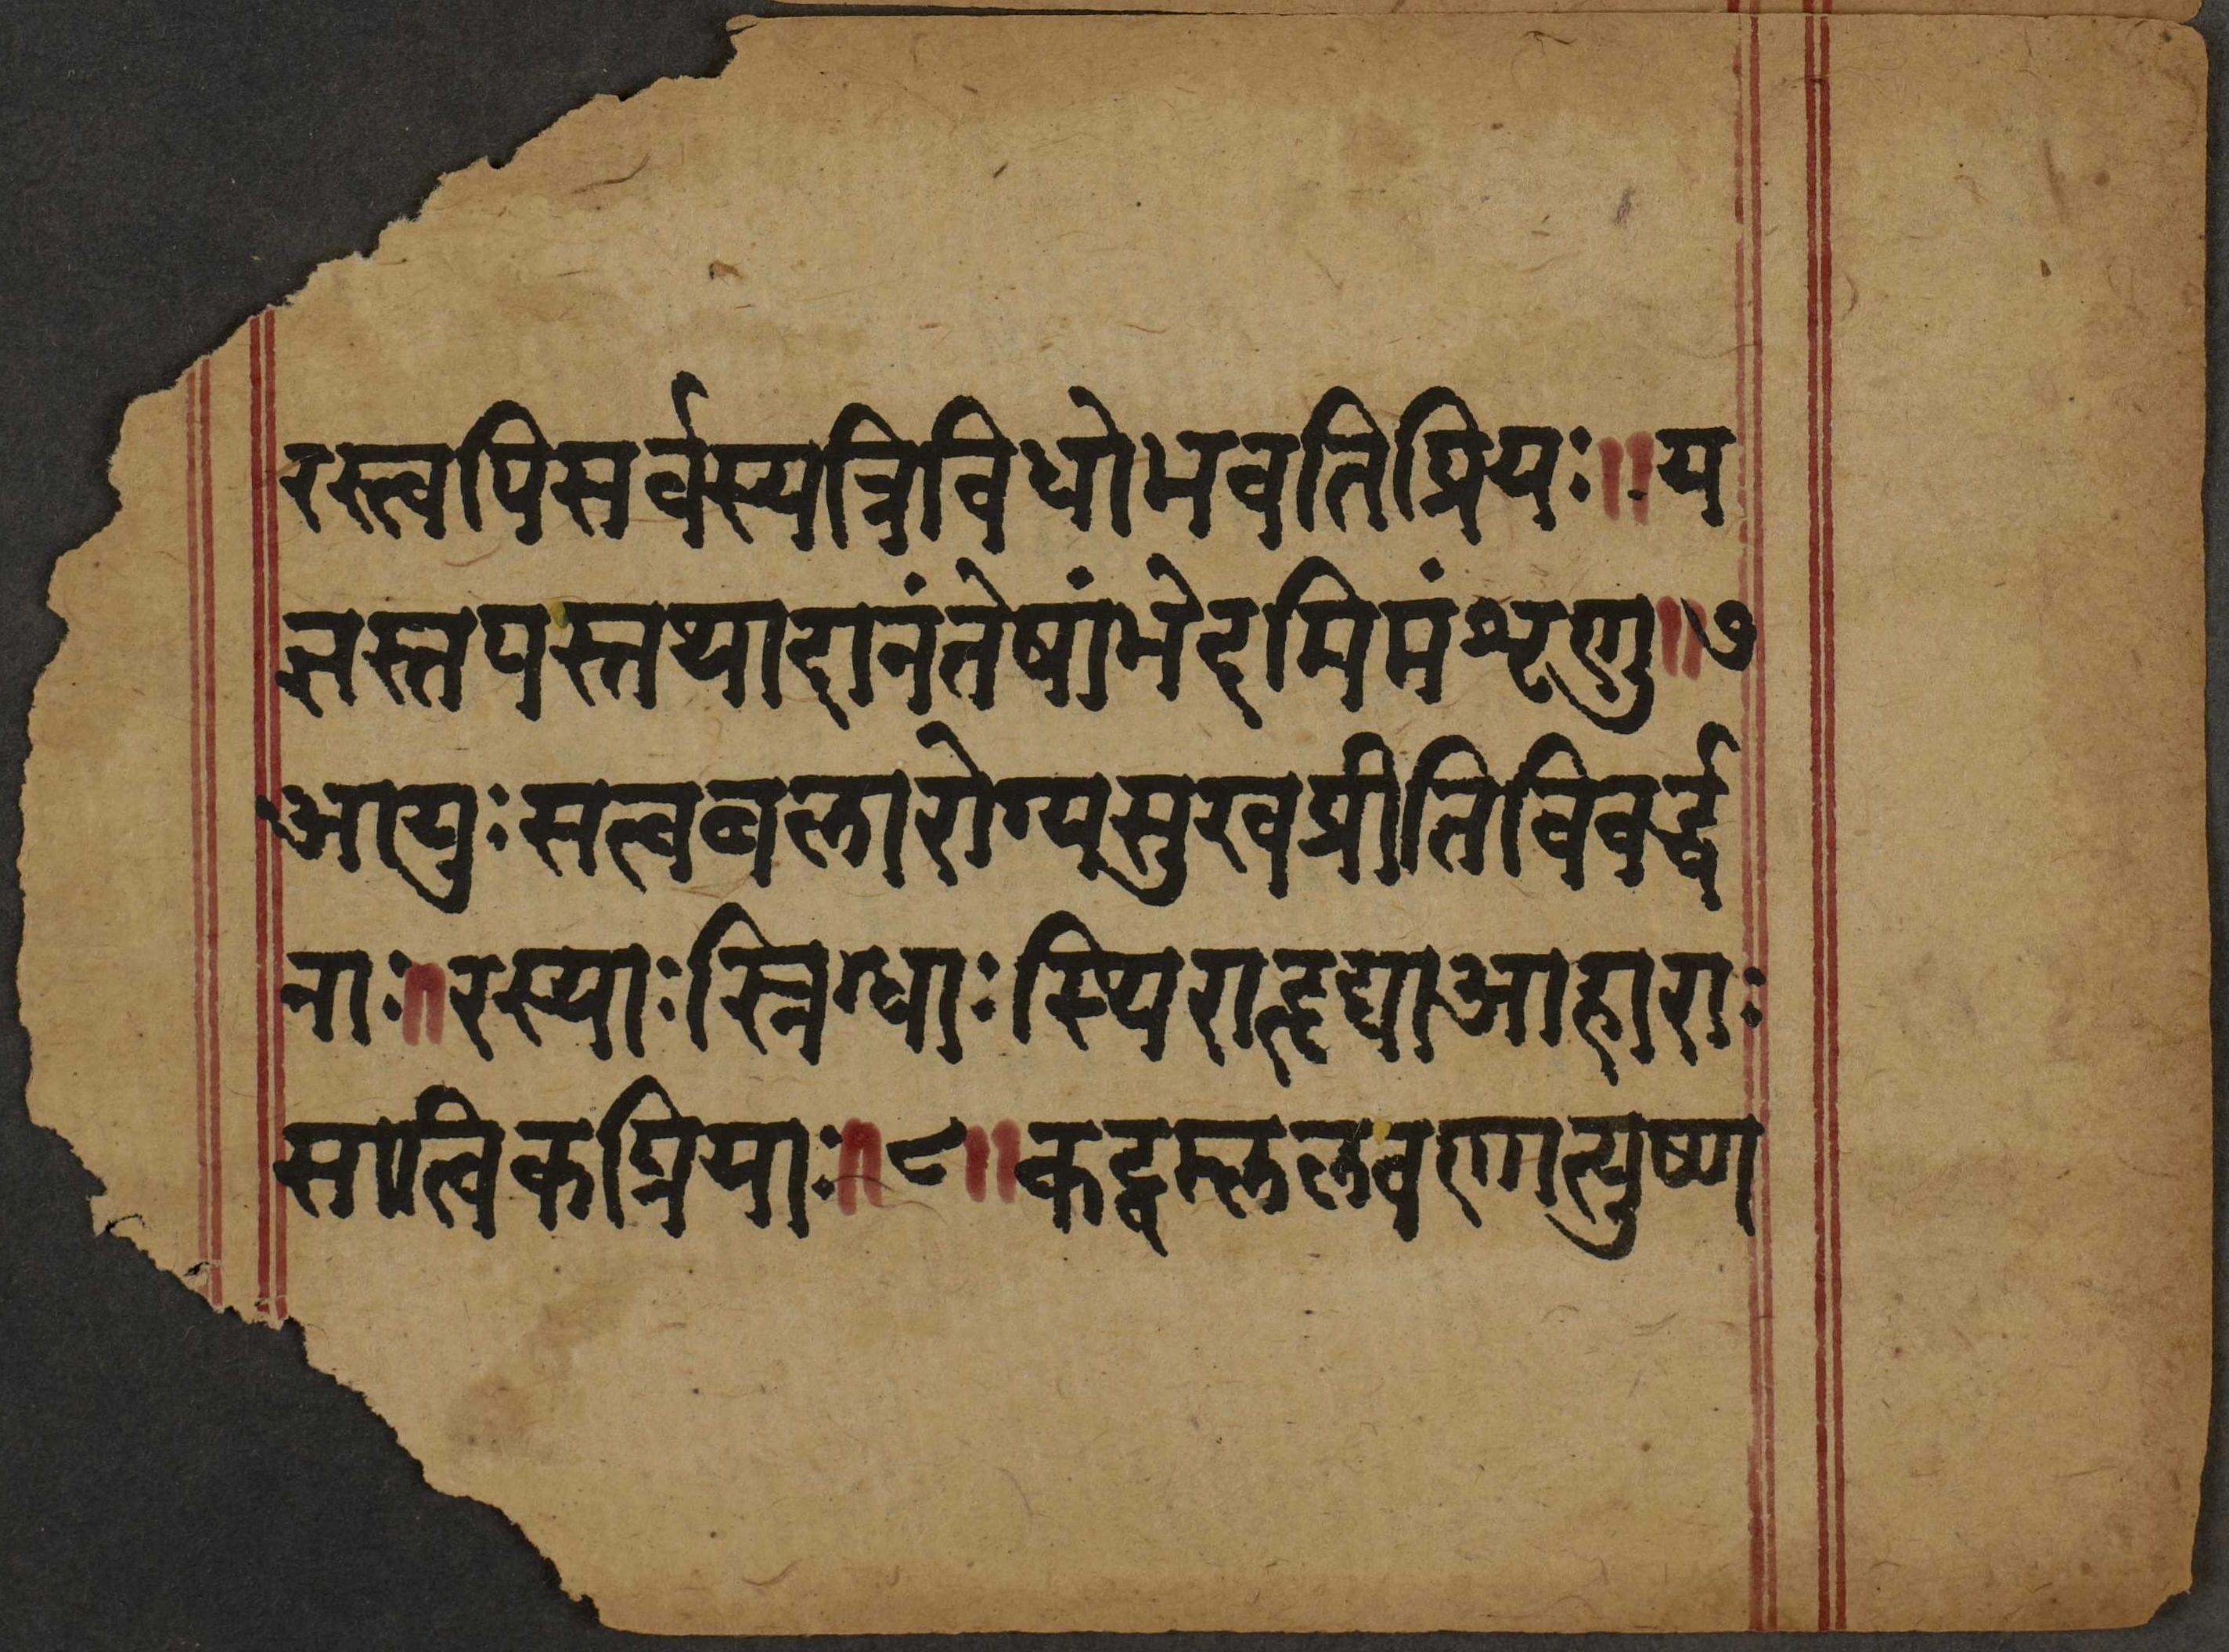 रस्त्वपिसर्वस्यत्रिविधोभवतिप्रियः॥य
ज्ञस्तपस्तथादानंतेषांभेदमिमंशृणु॥७
आयुःसत्वबलारोग्यसुखप्रीतिविवर्द्ध
नाः॥रस्याःस्निग्धाःस्थिराहृद्याआहाराः
सात्विकप्रियाः॥८॥कट्वम्ललवणात्युष्ण